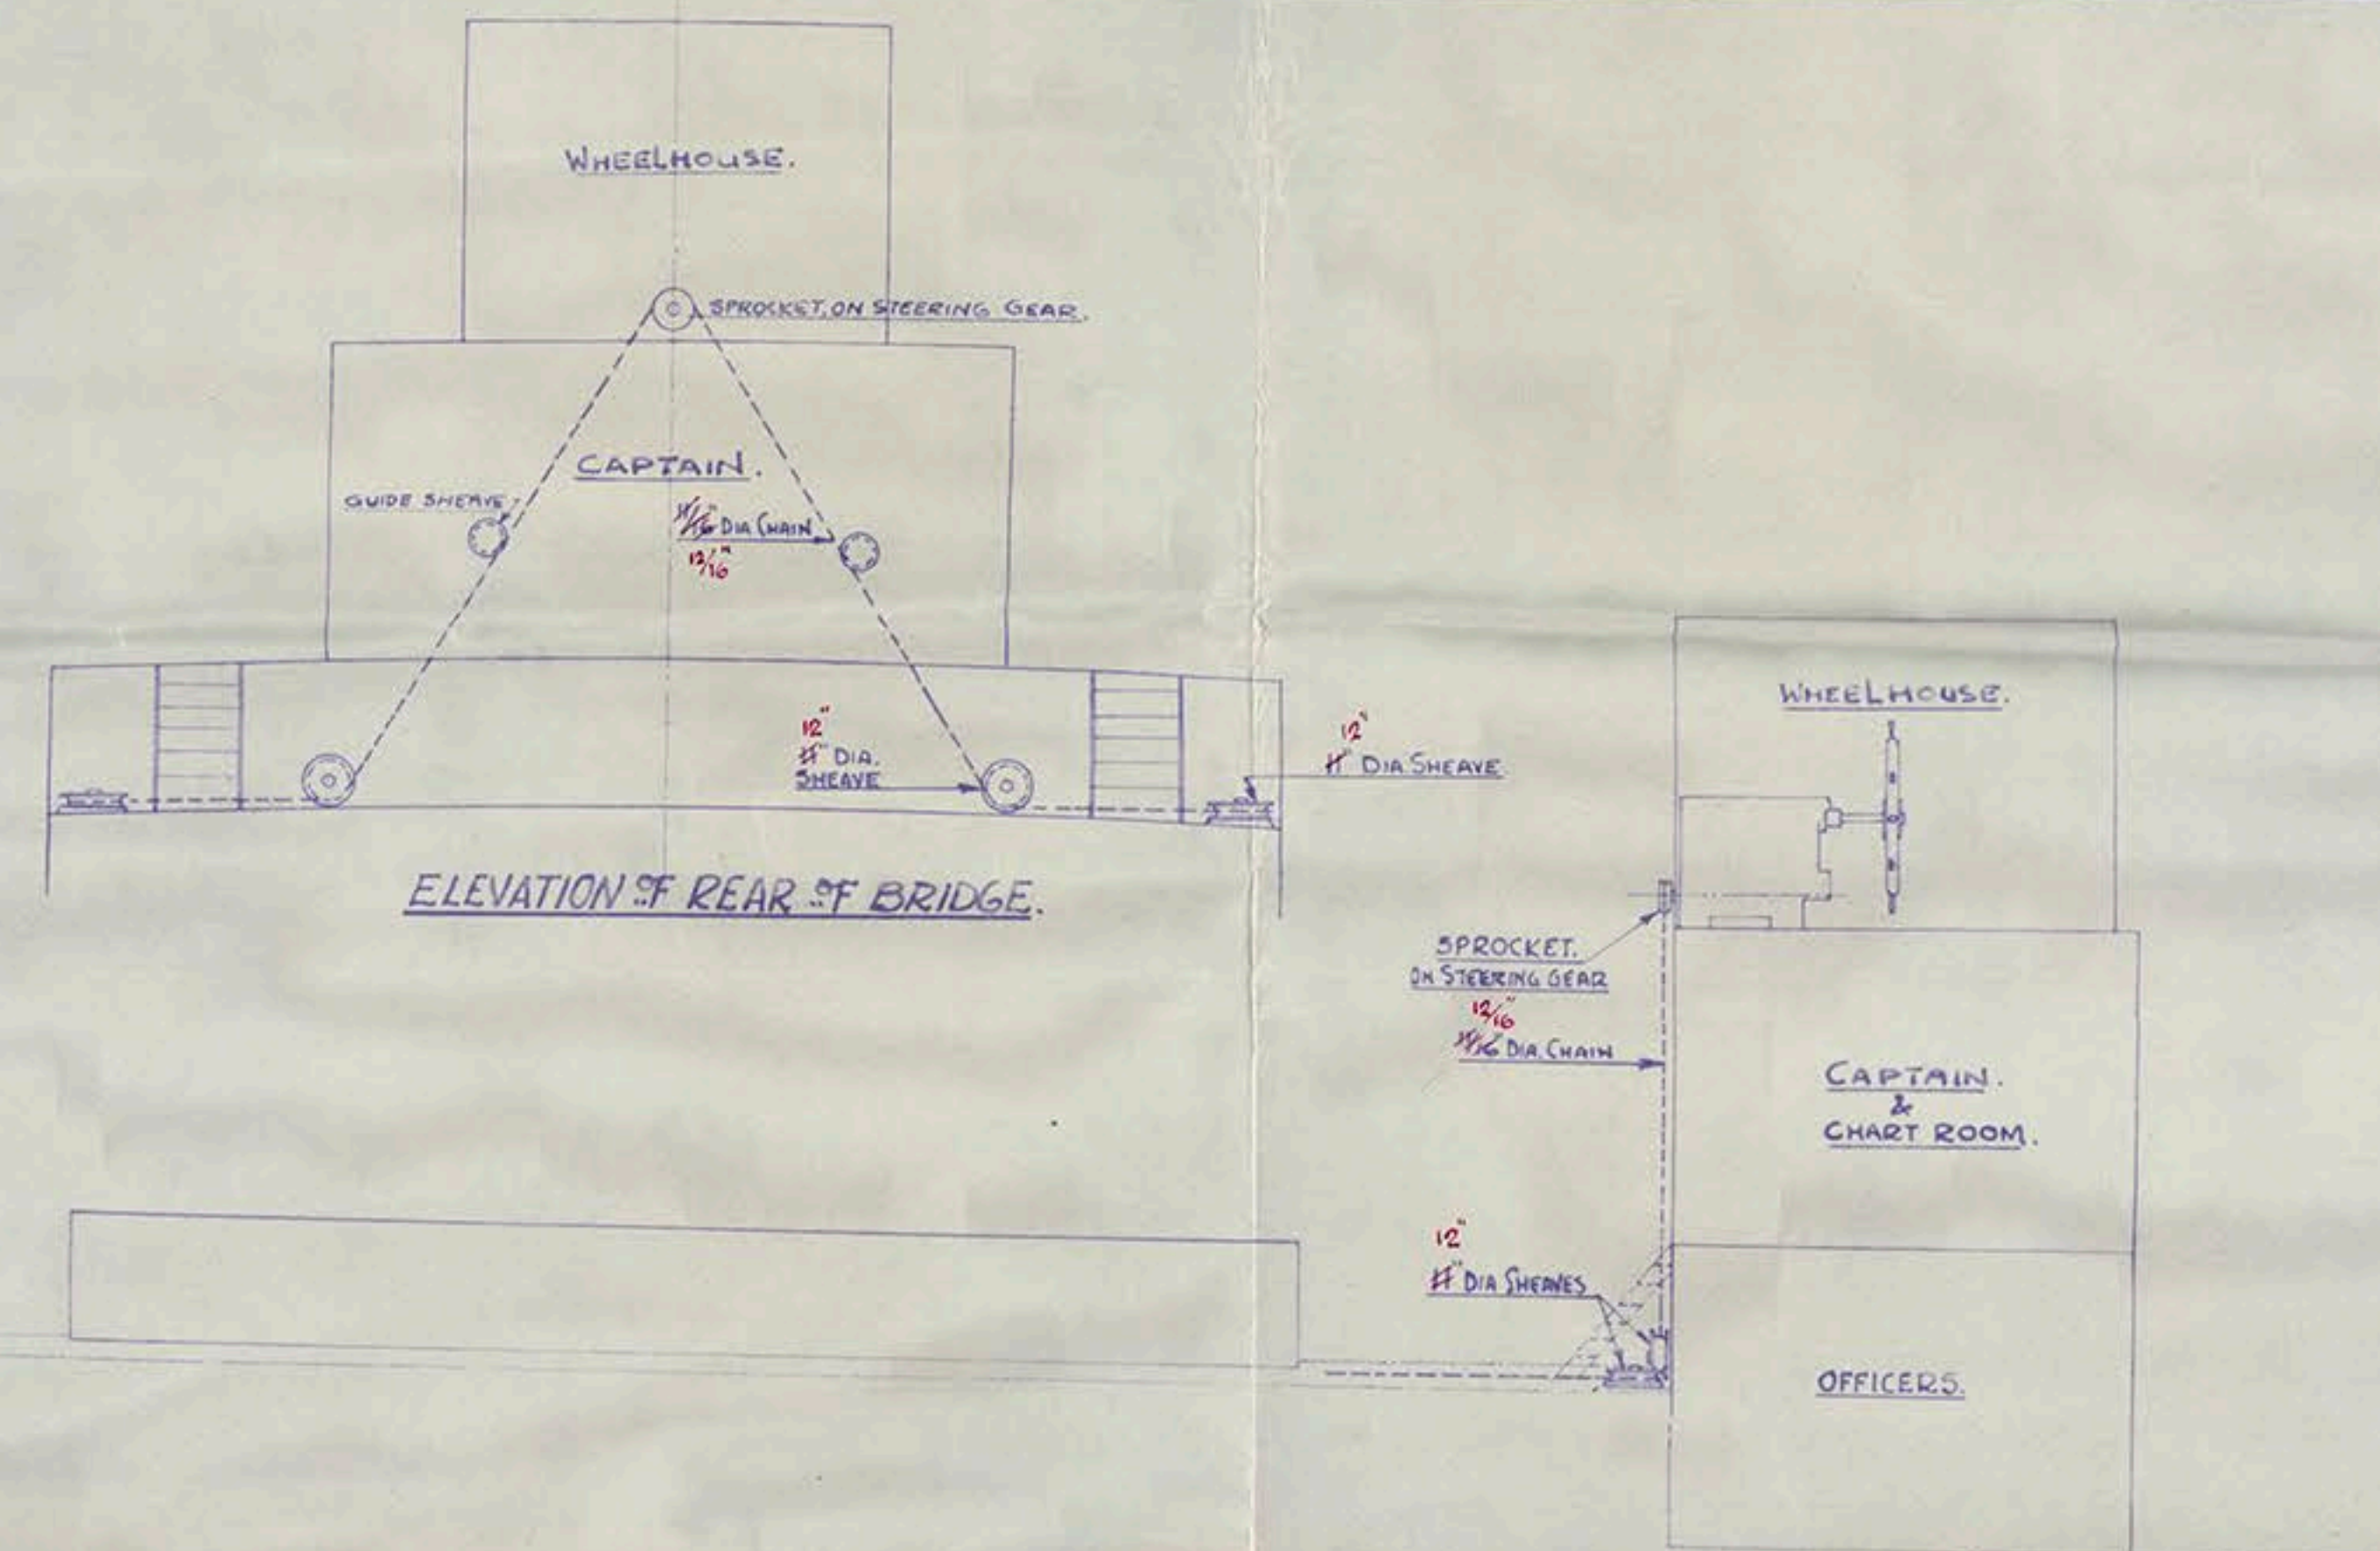 WHEELHOUSE.
SPROCKET ON STEERING GEAR.
CAPTAIN.
GUIDE SHEAVE
11/16" DIA CHAIN
12/16"
12"
11" DIA.
SHEAVE
12"
11" DIA SHEAVE
ELEVATION OF REAR OF BRIDGE.
WHEELHOUSE.
SPROCKET.
ON STEERING GEAR
12/16"
11/16 DIA. CHAIN
CAPTAIN.
&
CHART ROOM.
12"
11" DIA SHEAVES
OFFICERS.